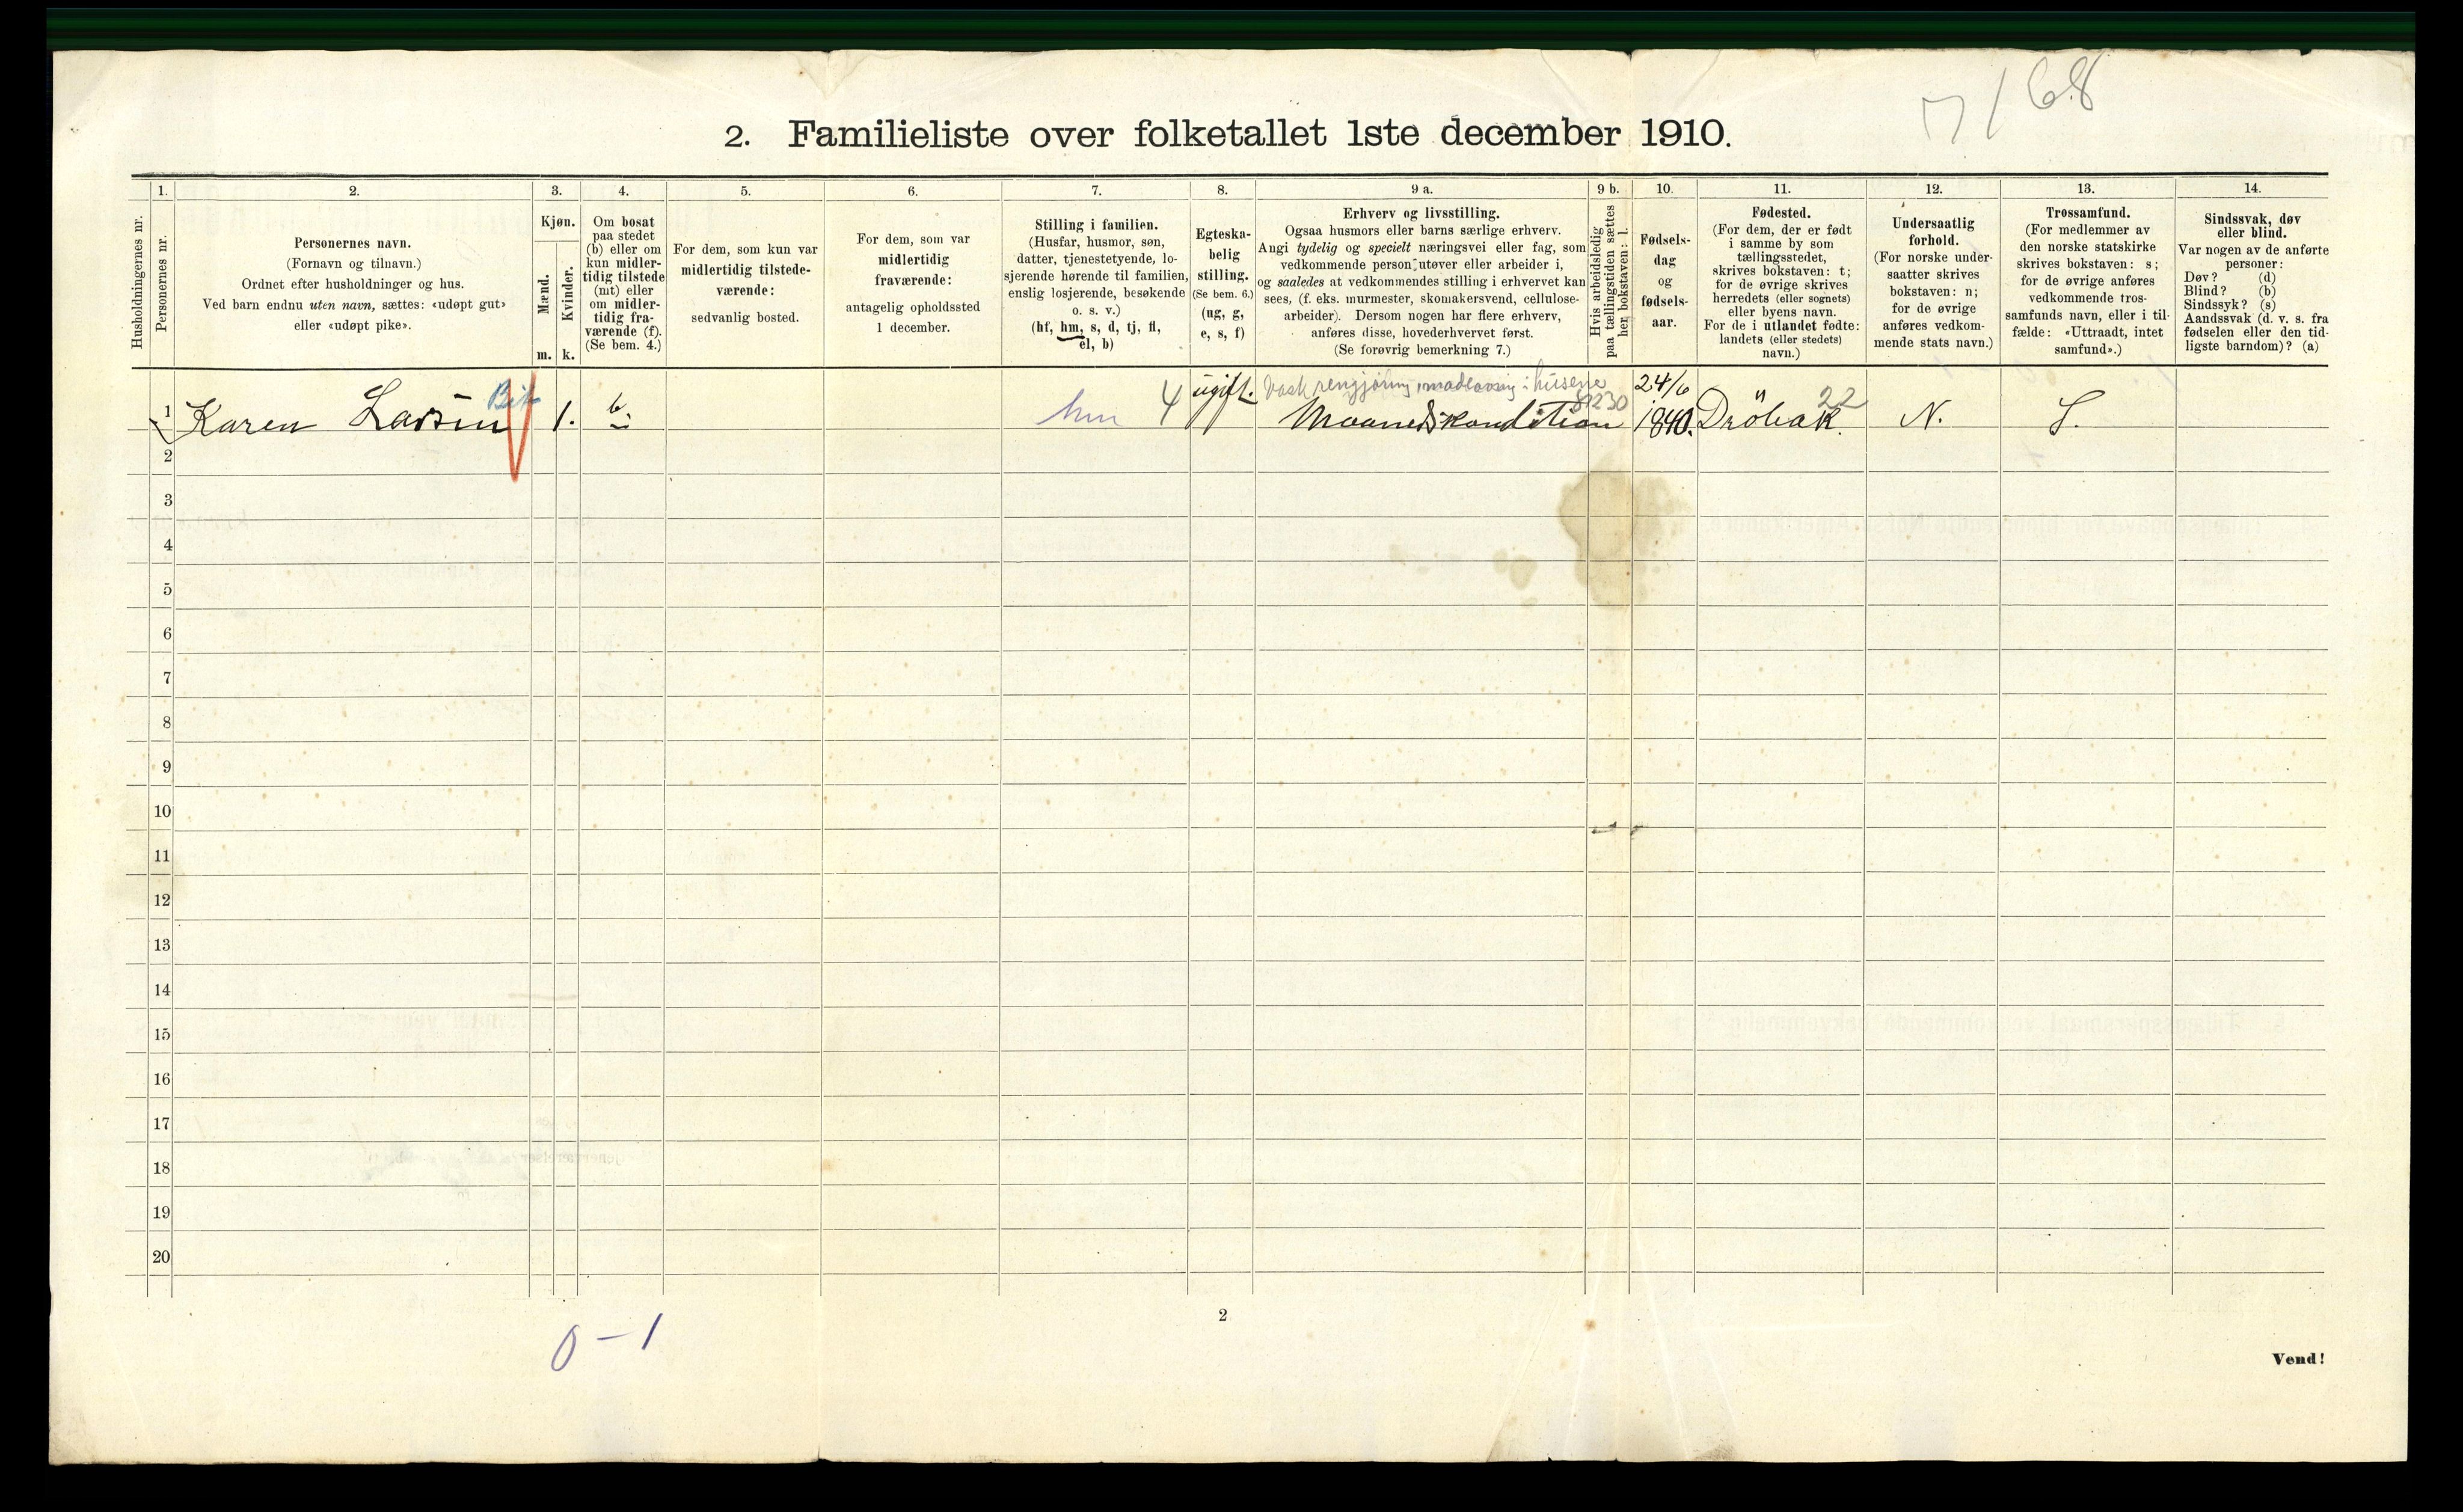 7/68
2. Familieliste over folketallet 1ste december 1910.
1. 2. 3. 4. 5. 6. 7. 8. 9 a. 9 b. 10. 11. 12. 13. 14.
Husholdningernes nr.
Personernes nr.
Personernes navn.
(Fornavn og tilnavn.)
Ordnet efter husholdninger og hus.
Ved barn endnu uten navn, sættes: «udøpt gut»
eller «udøpt pike».
Kjøn.
Mænd.
Kvinder.
m. k.
Om bosat
paa stedet
(b) eller om
kun midler-
tidig tilstede
(mt) eller
om midler-
tidig fra-
værende (f).
(Se bem. 4.)
For dem, som kun var
midlertidig tilstede-
værende:
sedvanlig bosted.
For dem, som var
midlertidig
fraværende:
antagelig opholdssted
1 december.
Stilling i familien.
(Husfar, husmor, søn,
datter, tjenestetyende, lo-
sjerende hørende til familien,
enslig losjerende, besøkende
o. s. v.)
(hf, hm, s, d, tj, fl,
el, b)
Egteska-
belig
stilling.
(Se bem. 6.)
(ug, g,
e, s, f)
Erhverv og livsstilling.
Ogsaa husmors eller barns særlige erhverv.
Angi tydelig og specielt næringsvei eller fag, som
vedkommende person utøver eller arbeider i,
og saaledes at vedkommendes stilling i erhvervet kan
sees, (f. eks. murmester, skomakersvend, cellulose-
arbeider). Dersom nogen har flere erhverv,
anføres disse, hovederhvervet først.
(Se forøvrig bemerkning 7.)
Hvis arbeidsledig
paa tællingstiden sættes
her bokstaven: l.
Fødsels-
dag
og
fødsels-
aar.
Fødested.
(For dem, der er født
i samme by som
tællingsstedet,
skrives bokstaven: t;
for de øvrige skrives
herredets (eller sognets)
eller byens navn.
For de i utlandet fødte:
landets (eller stedets)
navn.)
Undersaatlig
forhold.
(For norske under-
saatter skrives
bokstaven: n;
for de øvrige
anføres vedkom-
mende stats navn.)
Trossamfund.
(For medlemmer av
den norske statskirke
skrives bokstaven: s;
for de øvrige anføres
vedkommende tros-
samfunds navn, eller i til-
fælde: «Uttraadt, intet
samfund».)
Sindssvak, døv
eller blind.
Var nogen av de anførte
personer:
Døv? (d)
Blind? (b)
Sindssyk? (s)
Aandssvak (d. v. s. fra
fødselen eller den tid-
ligste barndom)? (a)
Vask rengjøring, madlavning i husene
1 Karen Larsen 1. b. hm 4 ugift. Maanedskondition 24/6 1840. Dröbak. 22 N. S.
2
3
4
5
6
7
8
9
10
11
12
13
14
15
16
17
18
19
20
2
0-1
Vend!